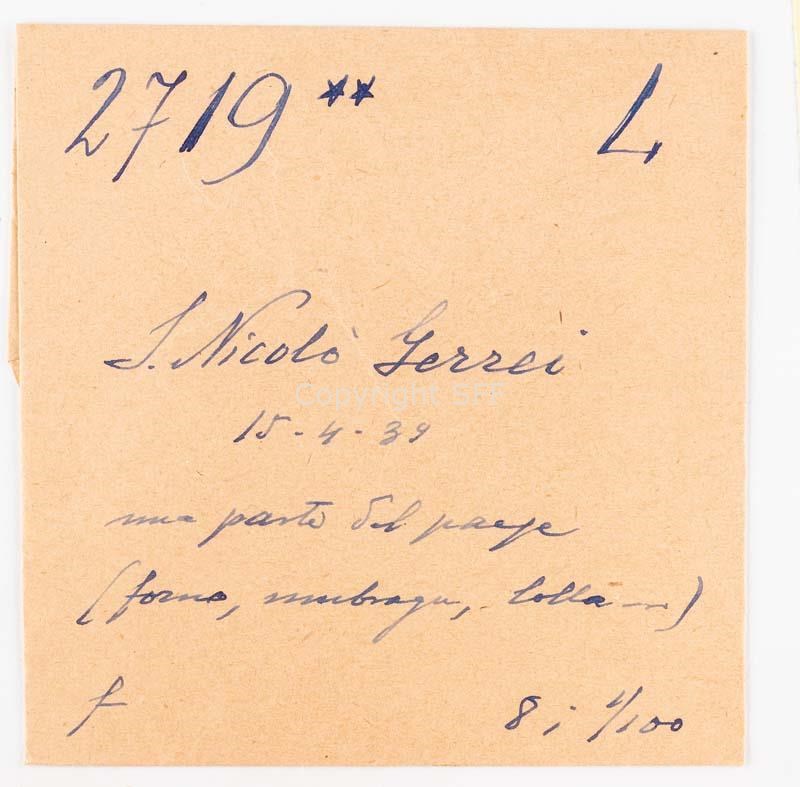 2719** L
S. Nicolò Gerrei
Copyright SFF
15-4-39
una parte del paese
(forno, umbragu, lolla ...)
f 8 i 1/100